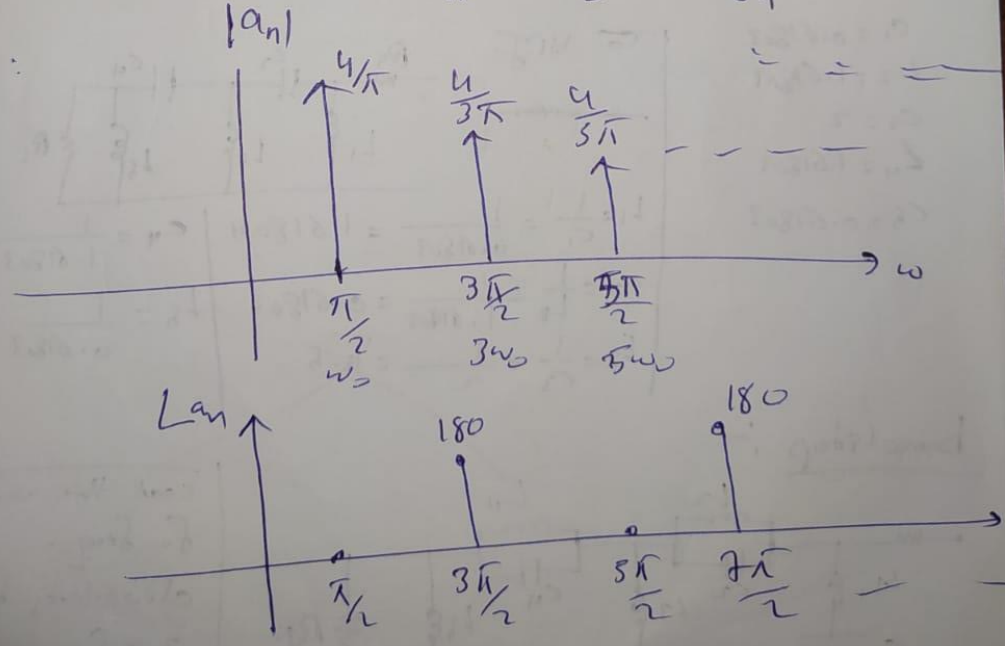 |aₙ|
4/π
4/3π
4/5π
- - - -
ω
π/2
3π/2
5π/2
ω₀
3ω₀
5ω₀
∠aₙ
180
180
π/2
3π/2
5π/2
7π/2